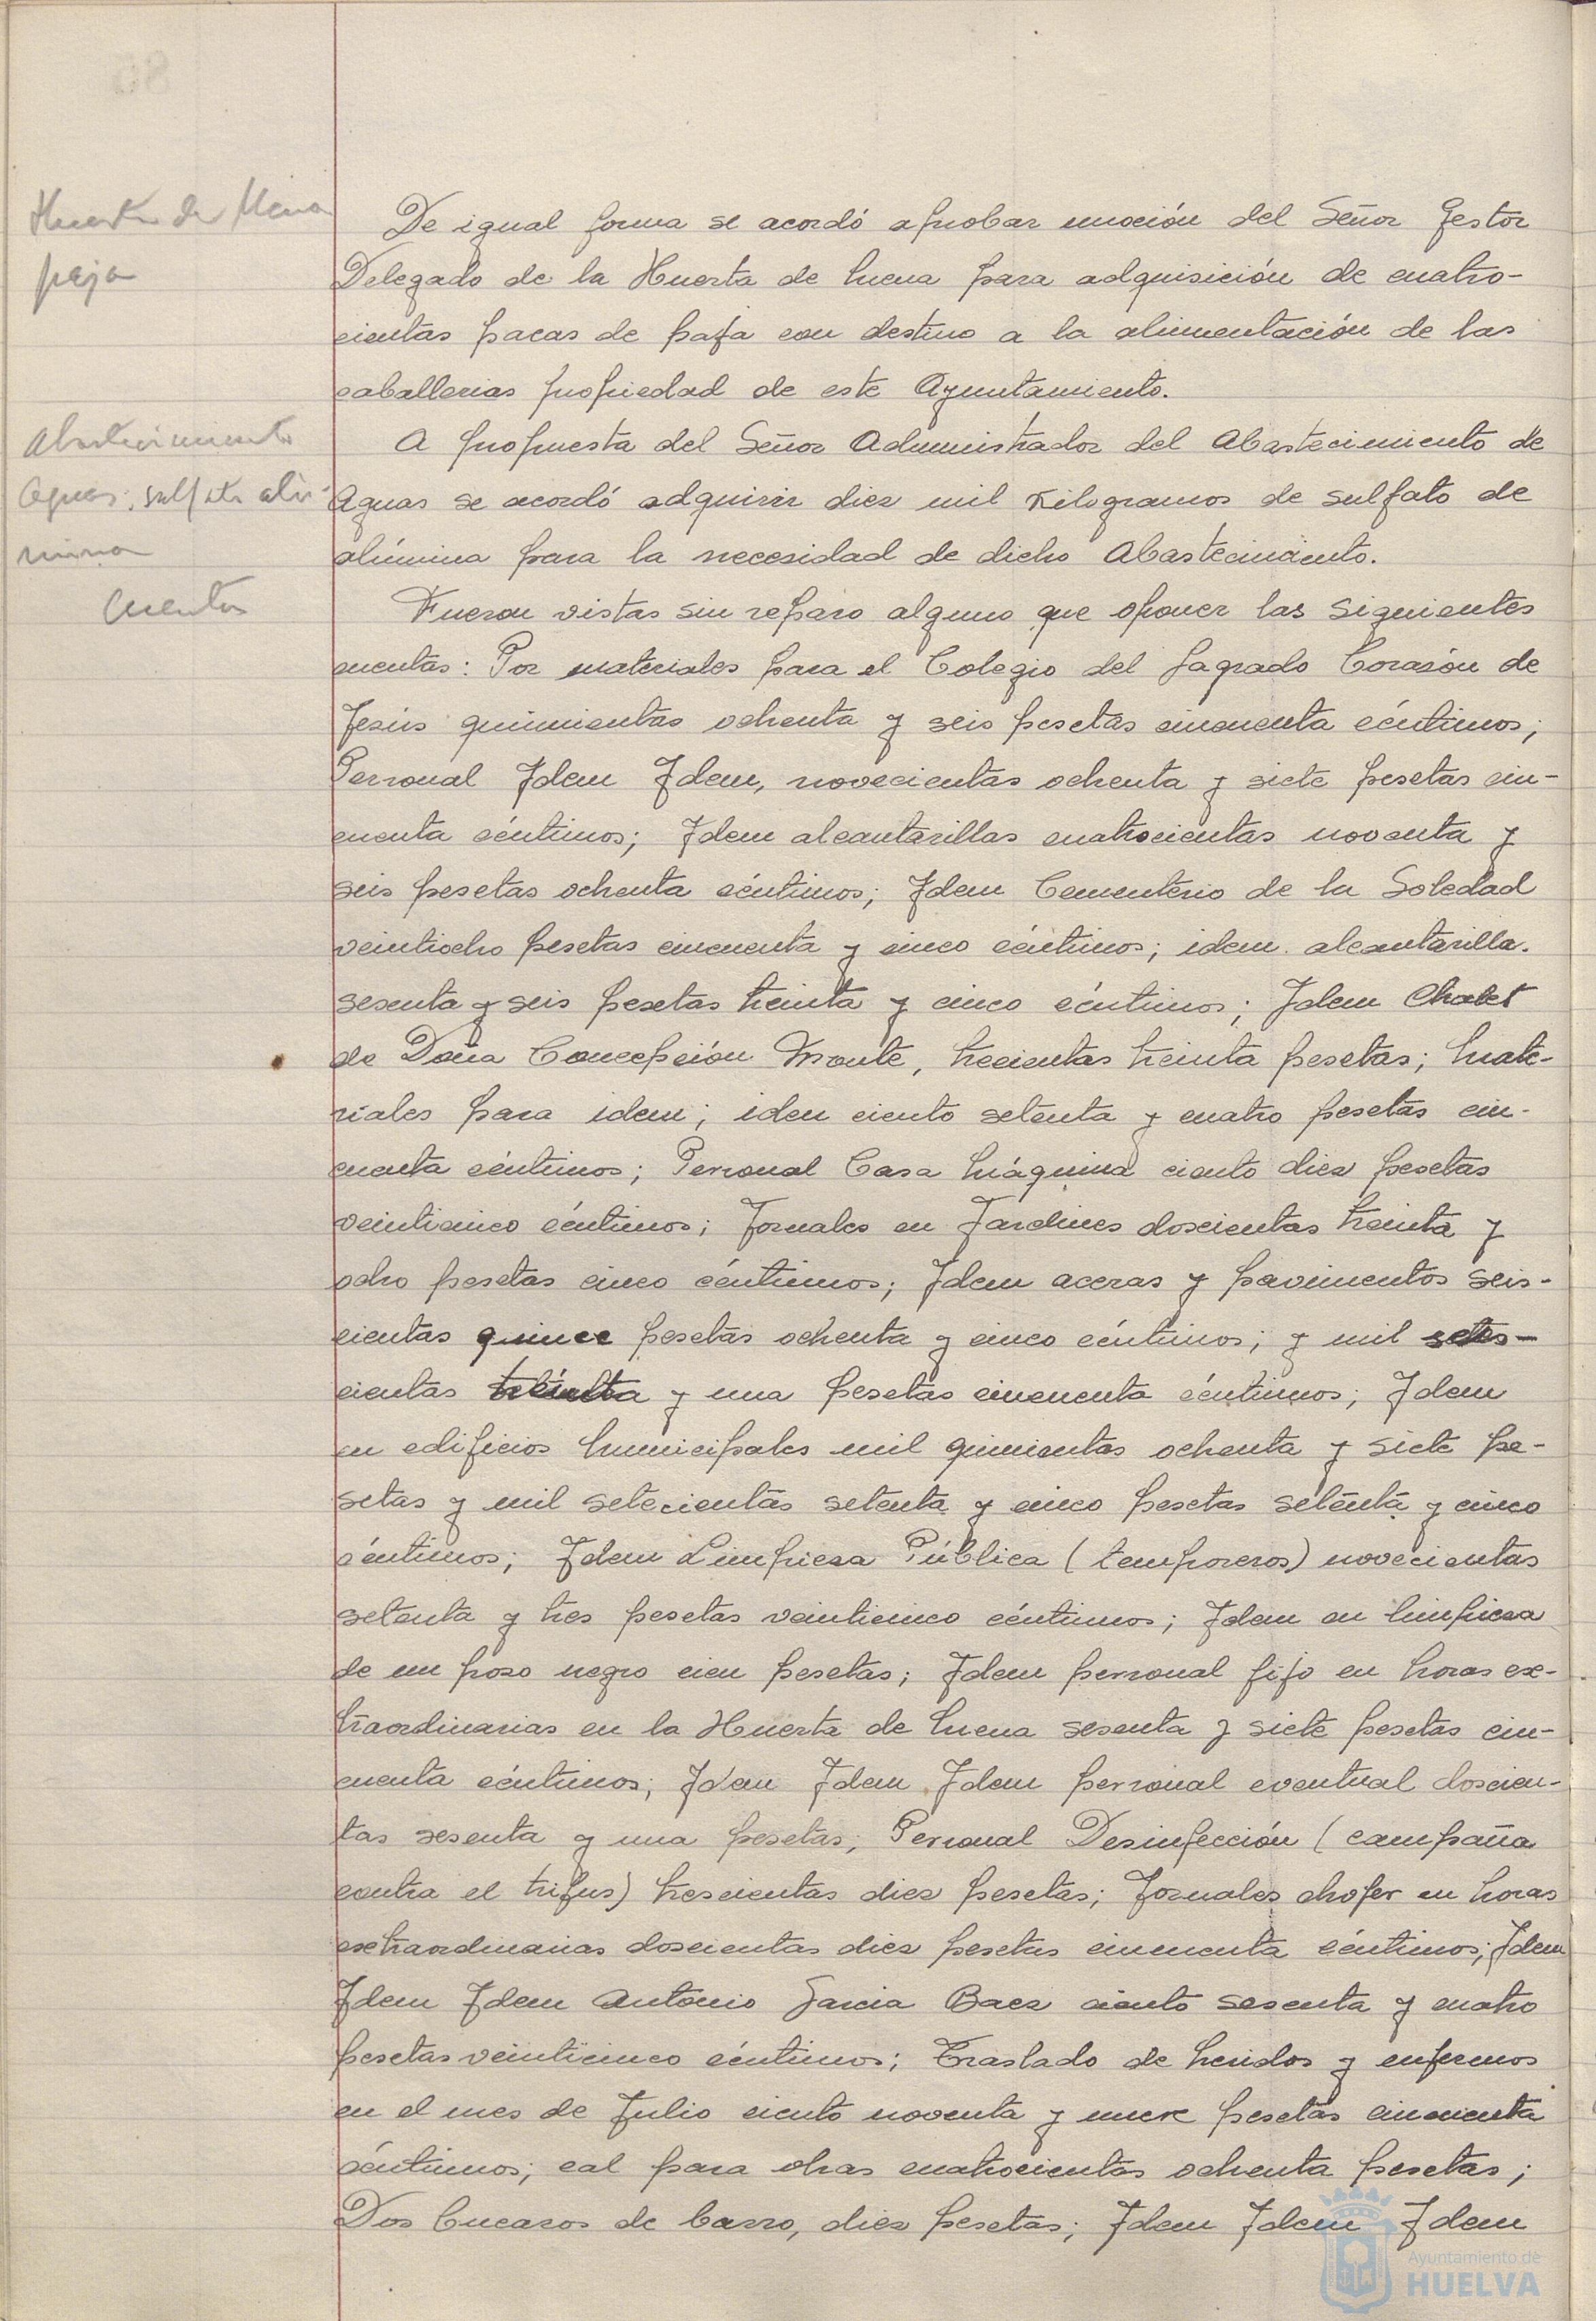 Huerta de Mena
paja
De igual forma se acordó aprobar moción del Señor Gestor
Delegado de la Huerta de Mena para adquisición de cuatro-
cientas pacas de paja con destino a la alimentación de las
caballerias propiedad de este Ayuntamiento.
Abastecimiento
Aguas; sulfato alú-
mina
A propuesta del Señor Administrador del Abastecimiento de
Aguas se acordó adquirir diez mil Kilogramos de sulfato de
alúmina para la necesidad de dicho Abastecimiento.
Cuentas
Fueron vistas sin reparo alguno que oponer las siguientes
cuentas: Por materiales para el Colegio del Sagrado Corazón de
Jesús quinientas ochenta y seis pesetas cincuenta céntimos;
Personal Idem Idem, novecientas ochenta y siete pesetas cin-
cuenta céntimos; Idem alcantarillas cuatrocientas noventa y
seis pesetas ochenta céntimos; Idem Cementerio de la Soledad
veintiocho pesetas cincuenta y cinco céntimos; idem alcantarilla.
sesenta y seis pesetas treinta y cinco céntimos; Idem Chalet
de Doña Concepción Monte, trecientas treinta pesetas; Mate-
riales para idem; idem ciento setenta y cuatro pesetas cin-
cuenta céntimos; Personal Casa Máquina ciento diez pesetas
veinticinco céntimos; Jornales en Jardines doscientas treinta y
ocho pesetas cinco céntimos; Idem aceras y pavimentos seis-
cientas quince pesetas ochenta y cinco céntimos; y mil setes-
cientas treinta y una pesetas cincuenta céntimos; Idem
en edificios Municipales mil quinientas ochenta y siete pe-
setas y mil setecientas setenta y cinco pesetas setenta y cinco
céntimos; Idem Limpieza Pública (temporeros) novecientas
setenta y tres pesetas veinticinco céntimos; Idem en limpieza
de un pozo negro cien pesetas; Idem personal fijo en horas ex-
traordinarias en la Huerta de Mena sesenta y siete pesetas cin-
cuenta céntimos; Idem Idem Idem personal eventual doscien-
tas sesenta y una pesetas; Personal Desinfección (campaña
contra el trifus) trescientas diez pesetas; Jornales chofer en horas
extraordinarias doscientas diez pesetas cincuenta céntimos; Idem
Idem Idem Antonio Garcia Baez ciento sesenta y cuatro
pesetas veinticinco céntimos; Traslado de heridos y enfermos
en el mes de Julio ciento noventa y nueve pesetas cincuenta
céntimos; cal para obras cuatrocientas ochenta pesetas;
Dos bucaros de barro, diez pesetas; Idem Idem Idem
Ayuntamiento de
HUELVA